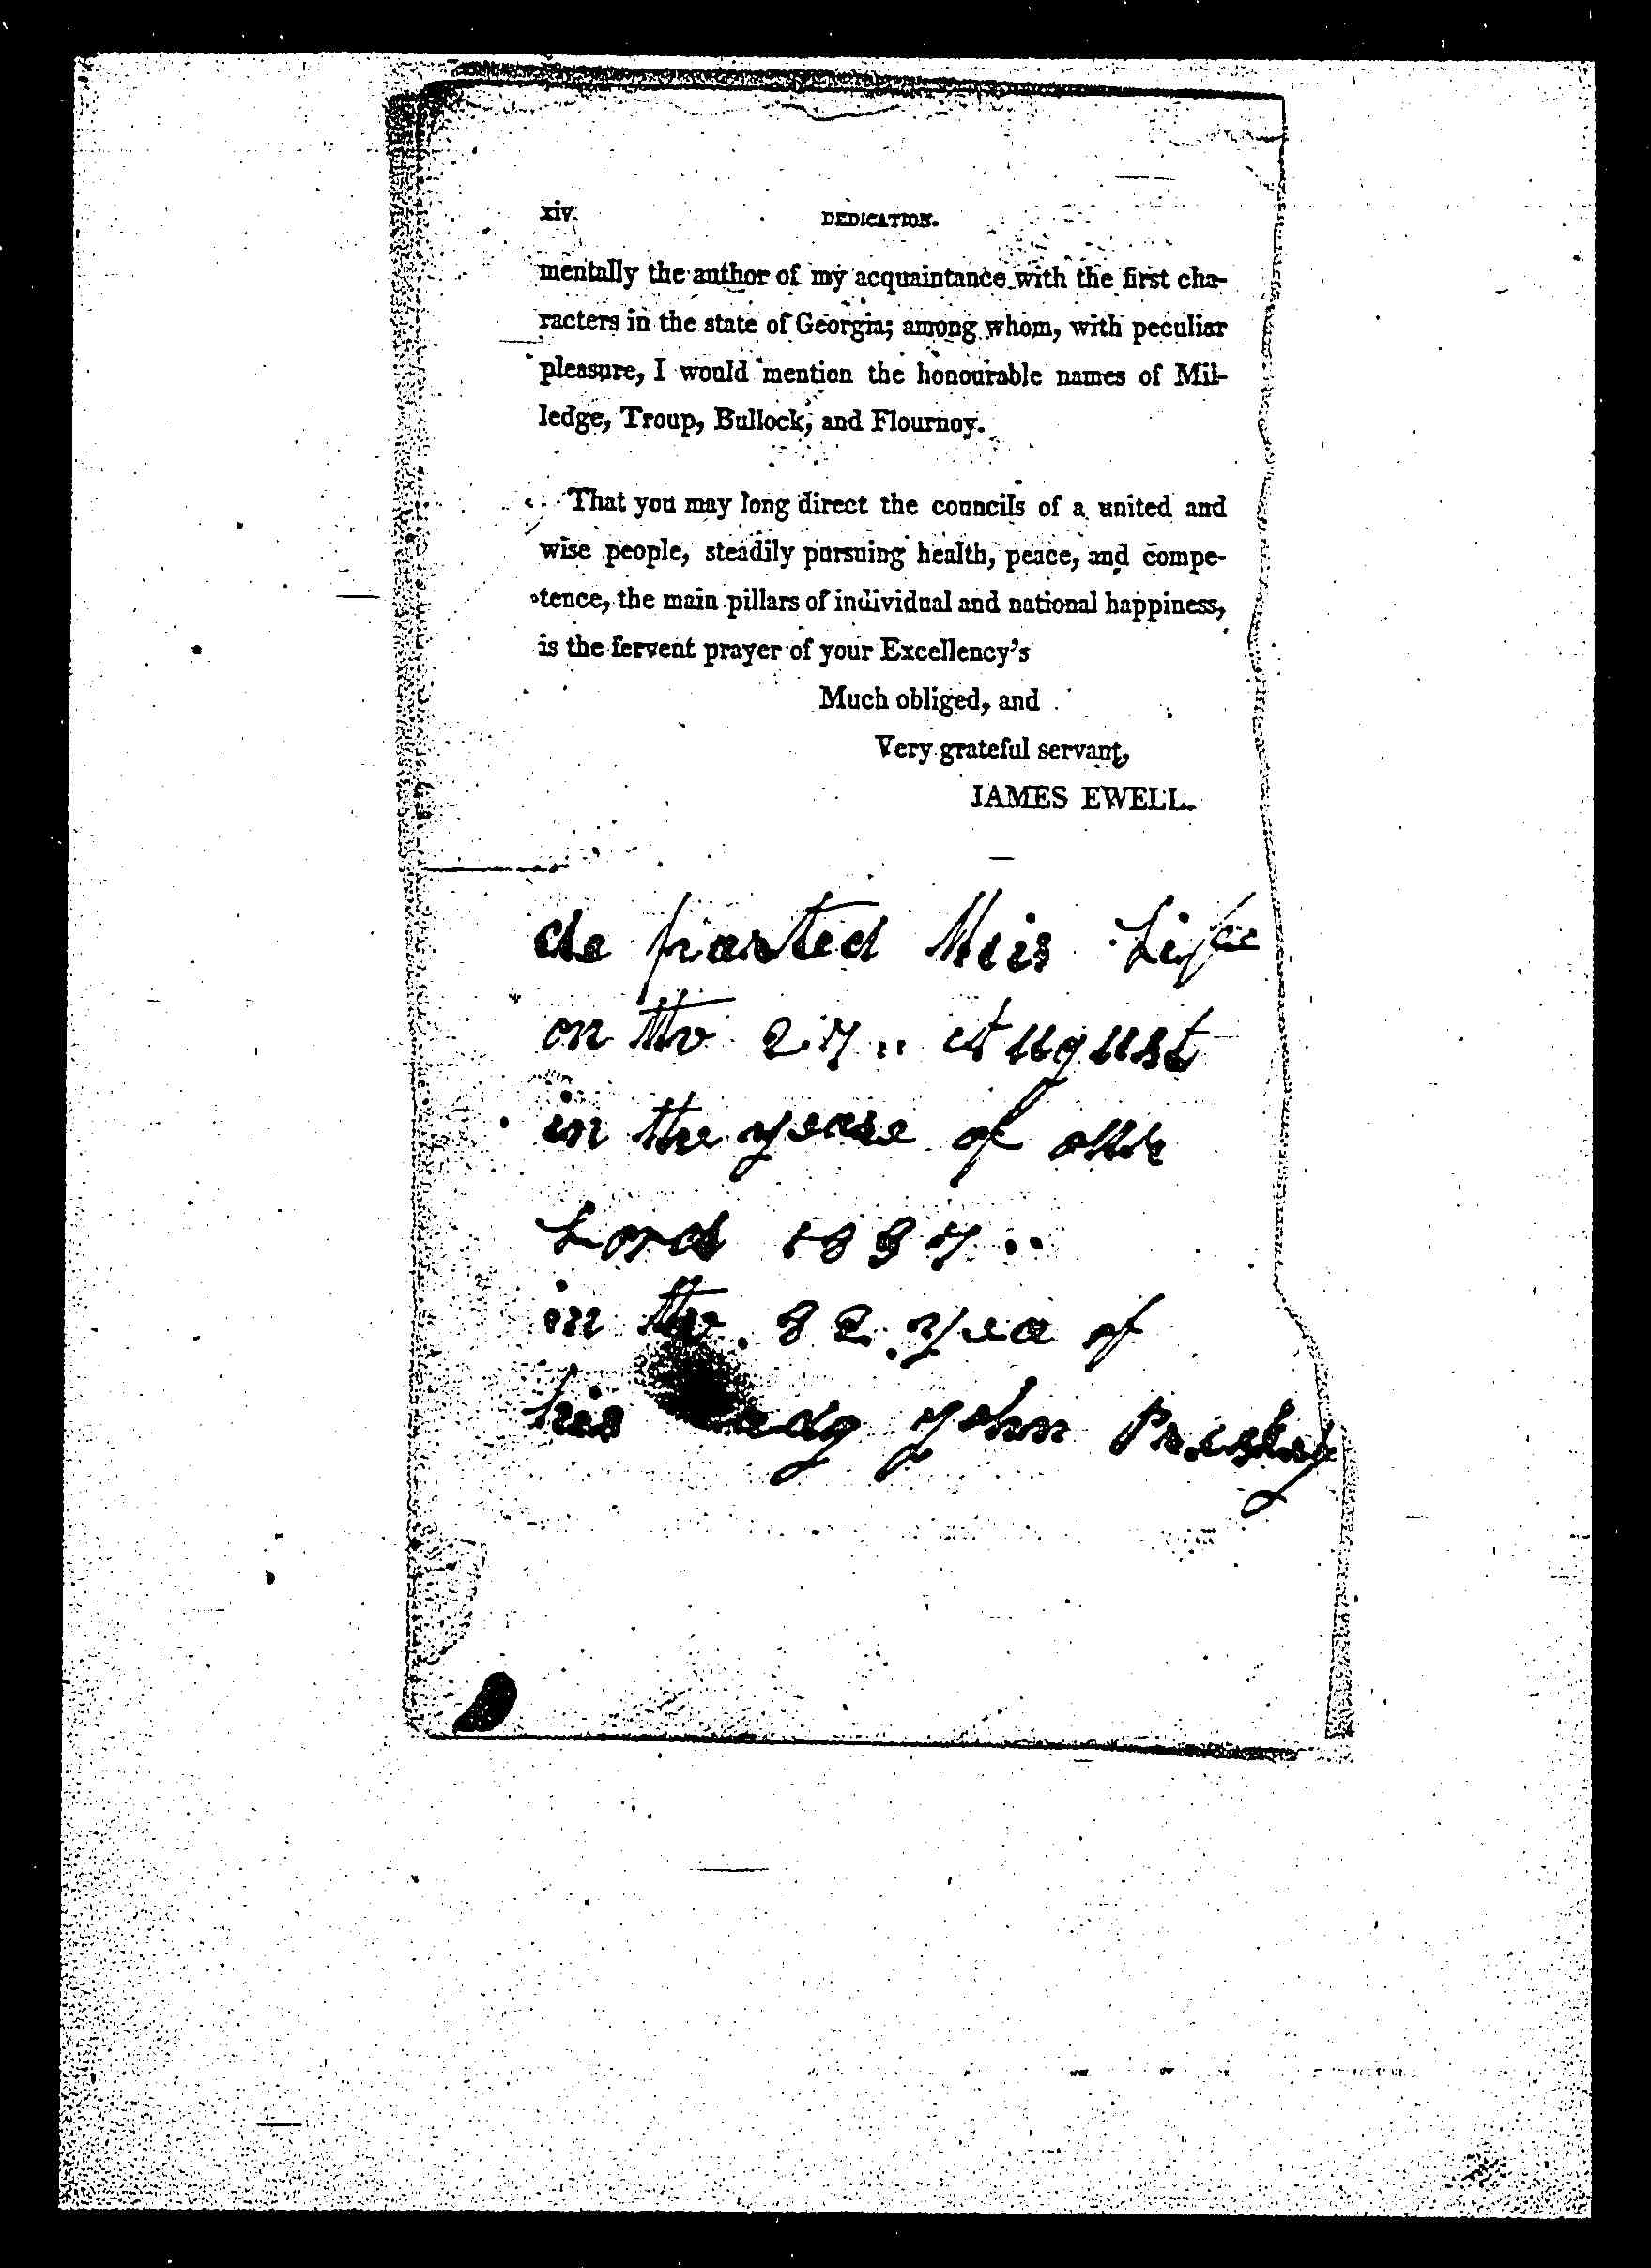 xiv. DEDICATION.
mentally the author of my acquaintance with the first cha-
racters in the state of Georgia; among whom, with peculiar
pleasure, I would mention the honourable names of Mil-
ledge, Troup, Bullock, and Flournoy.
That you may long direct the councils of a united and
wise people, steadily pursuing health, peace, and compe-
tence, the main pillars of individual and national happiness,
is the fervent prayer of your Excellency's
Much obliged, and
Very grateful servant,
JAMES EWELL.
de parted this Life
on the 27 .. August
in the yeare of our
Lord 1837 ..
in the 82 yea of
his John Presley